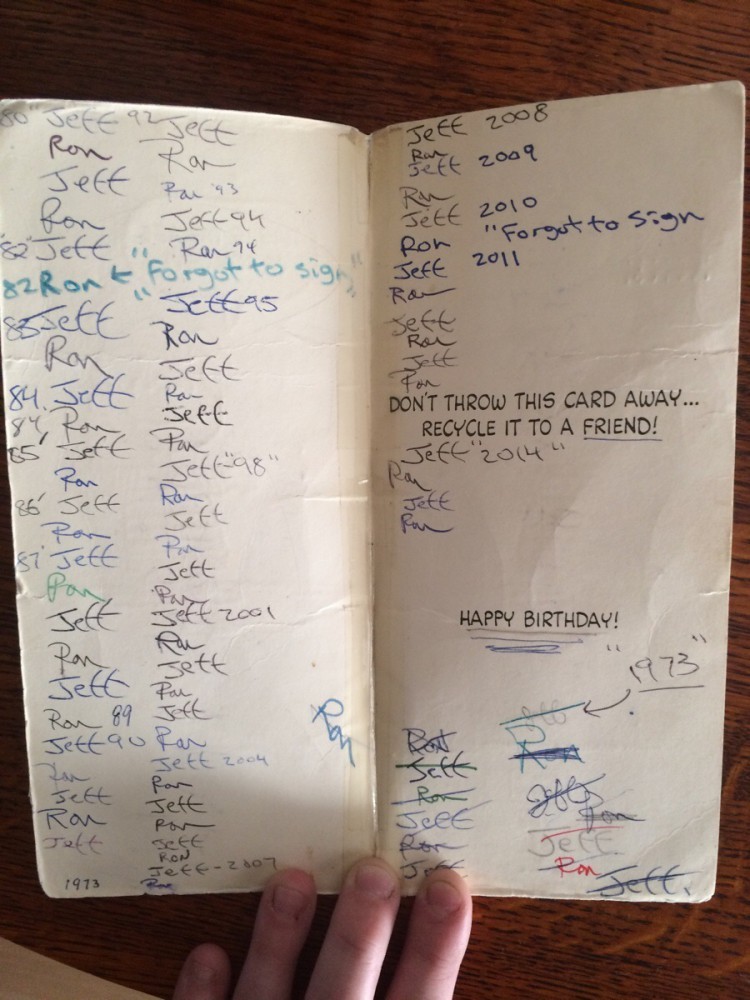 80" Jeff 92
Ron
Jeff
Ron
"82" Jeff
82 Ron ← "Forgot to sign"
83 Jeff
Ron
84. Jeff
84' Ron
85' Jeff
Ron
86' Jeff
Ron
87' Jeff
Ron
Jeff
Ron
Jeff
Ron 89
Jeff 90
Ron
Jeff
Ron
Jeff
1973
Jeff
Ron
Ron '93
Jeff 94
Ron 94
Jeff 95
Ron
Jeff
Ron
Jeff
Ron
Jeff "98"
Ron
Jeff
Ron
Jeff
Ron
Jeff 2001
Ron
Jeff
Ron
Jeff
Ron
Jeff 2004
Ron
Jeff
Ron
Jeff
RON
Jeff - 2007
Ron
Ron
Jeff 2008
Ron
Jeff 2009
Ron
Jeff 2010
Ron "Forgot to sign
Jeff 2011
Ron
Jeff
Ron
Jeff
Ron
DON'T THROW THIS CARD AWAY...
RECYCLE IT TO A FRIEND!
Jeff "2014"
Ron
Jeff
Ron
HAPPY BIRTHDAY!
"1973"
Ron
Jeff
Ron
Jeff
Ron
Jeff
Jeff
Ron
Jeff
Ron
Jeff
Ron
Jeff.